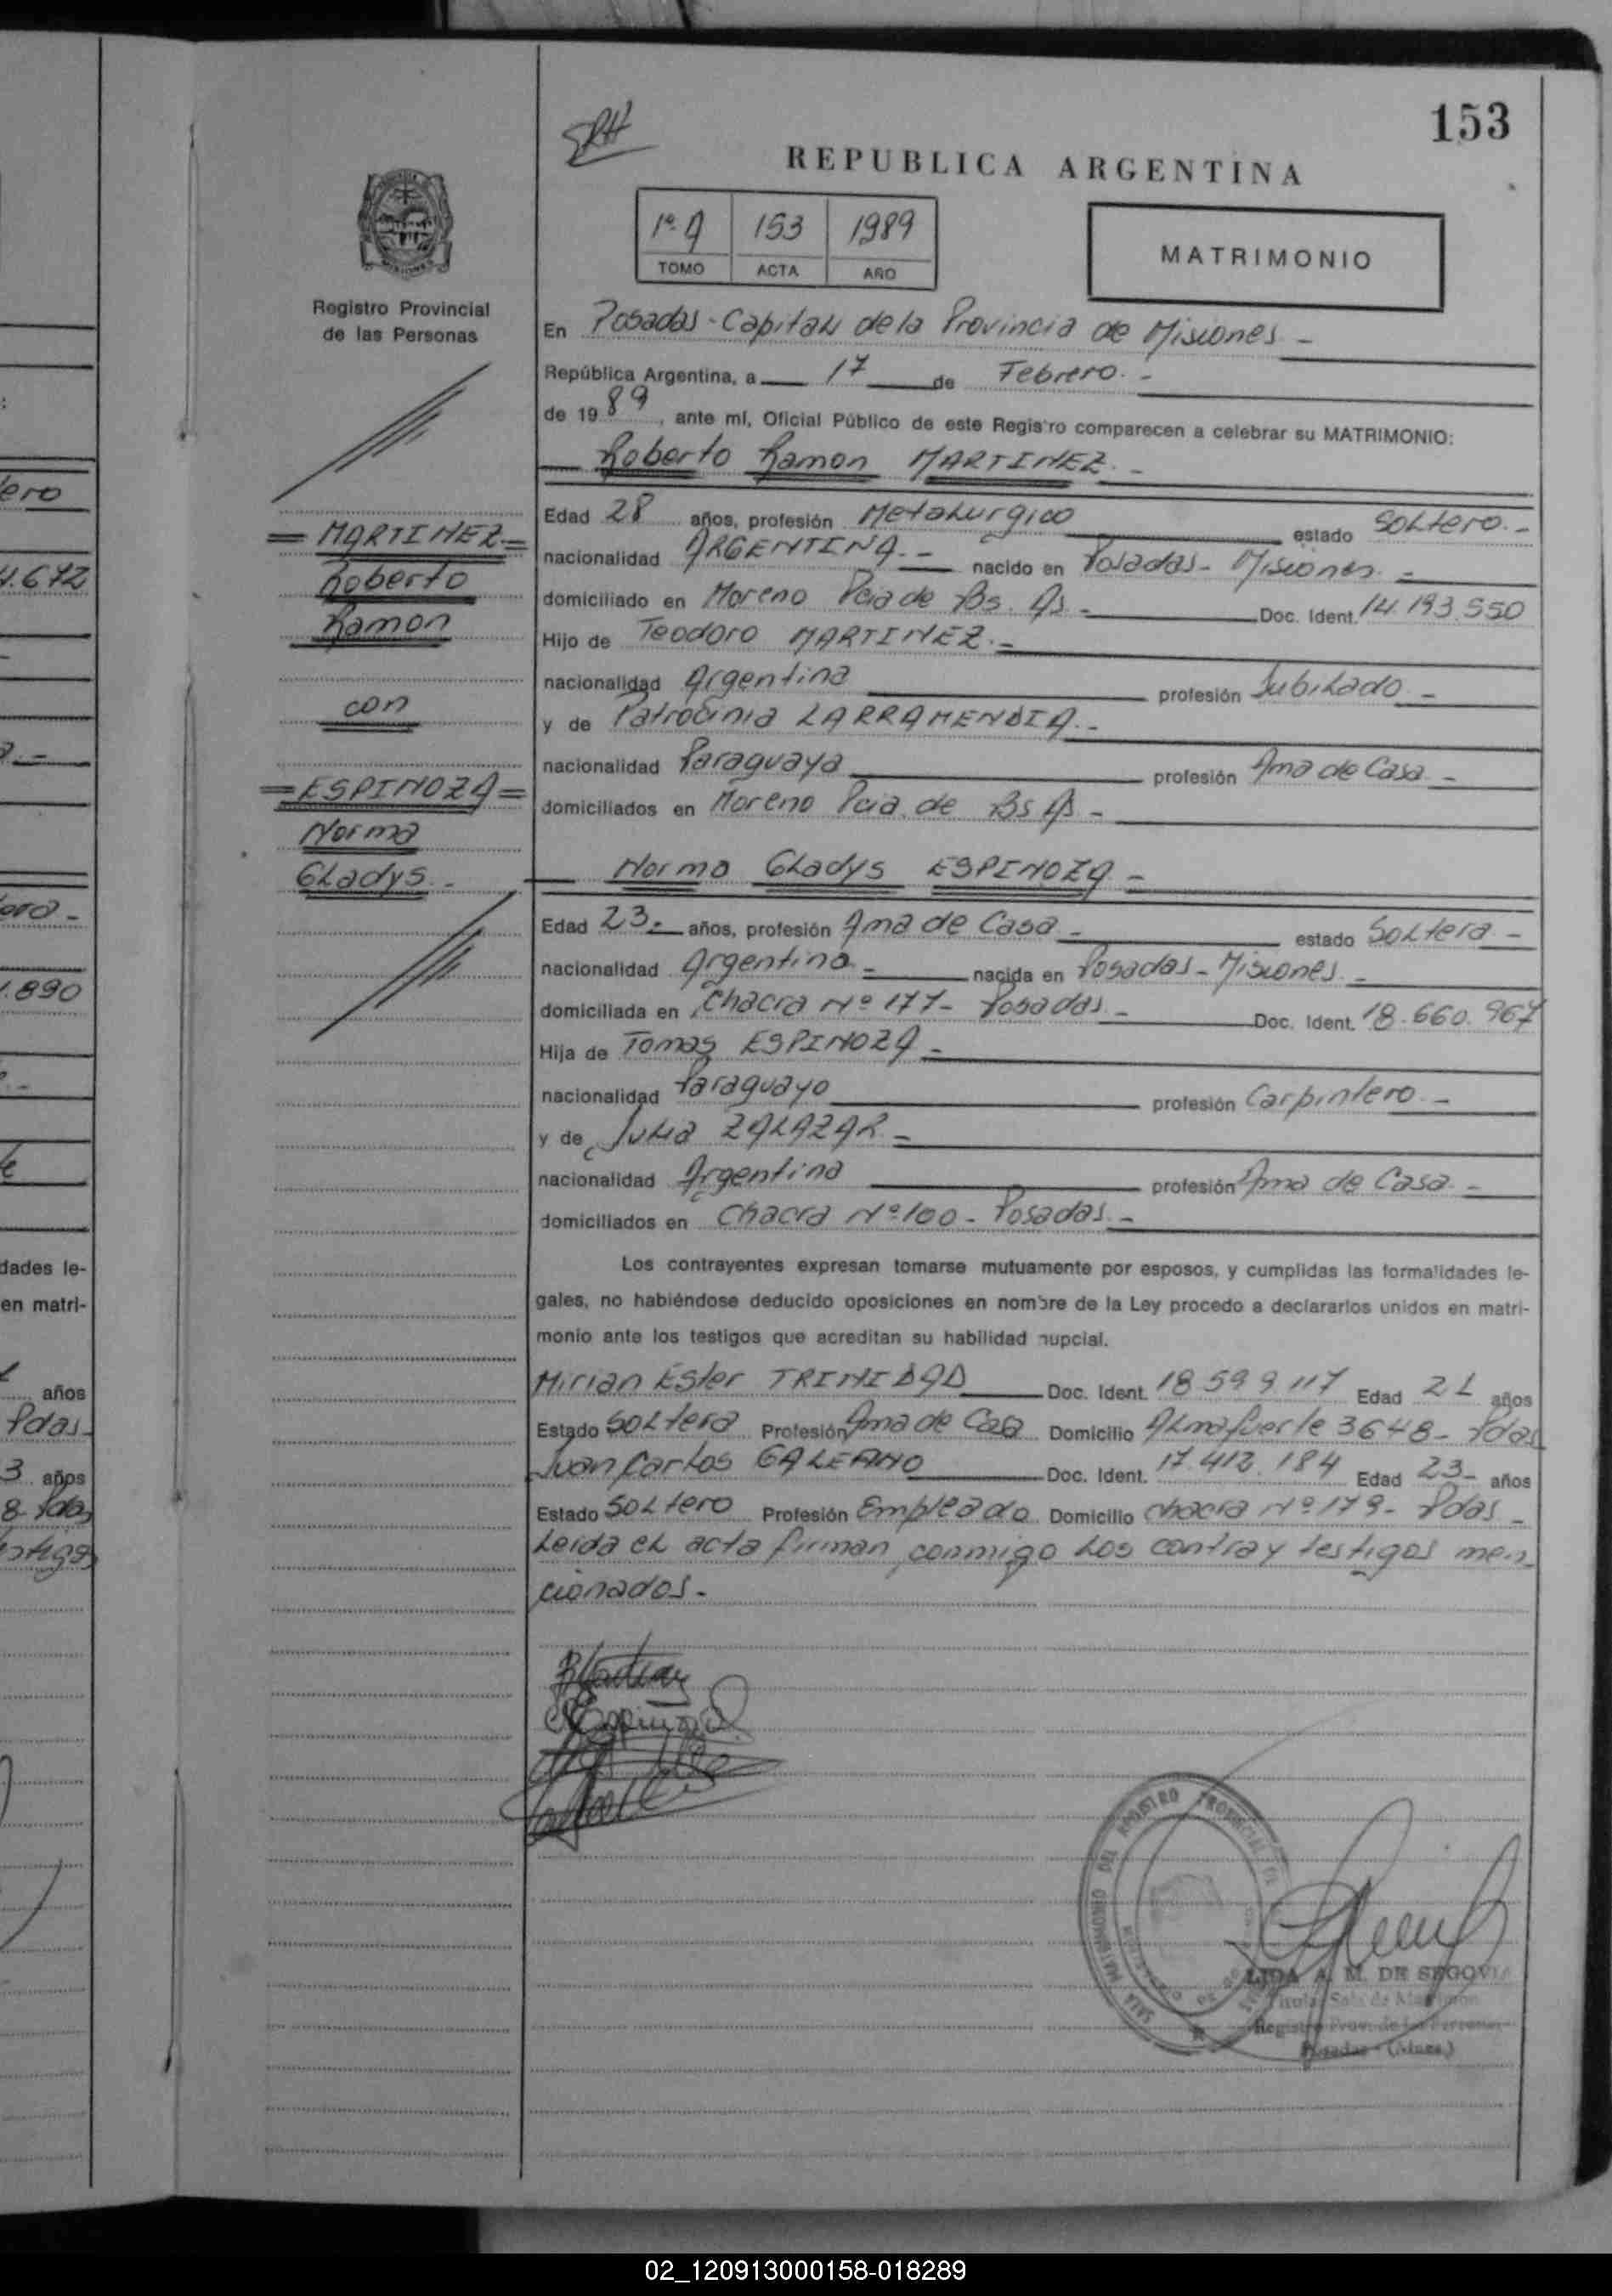 153
SRH
REPUBLICA ARGENTINA
1º A 153 1989
TOMO ACTA AÑO
MATRIMONIO
Registro Provincial
de las Personas
En Posadas-Capital de la Provincia de Misiones -
República Argentina, a 17 de Febrero. -
de 1989, ante mí, Oficial Público de este Registro comparecen a celebrar su MATRIMONIO:
Roberto Ramon MARTINEZ. -
Edad 28 años, profesión Metalurgico estado Soltero. -
nacionalidad ARGENTINA. - nacido en Posadas - Misiones. -
domiciliado en Moreno Pcia de Bs. As. - Doc. Ident. 14.193.550
Hijo de Teodoro MARTINEZ. -
nacionalidad Argentina profesión Jubilado -
y de Patrocinia LARRAMENDIA. -
nacionalidad Paraguaya profesión Ama de Casa -
domiciliados en Moreno Pcia. de Bs As -
= MARTINEZ =
Roberto
Ramon
con
= ESPINOZA =
Norma
Gladys. -
Norma Gladys ESPINOZA -
Edad 23. años, profesión Ama de Casa - estado Soltera -
nacionalidad Argentina - nacida en Posadas - Misiones. -
domiciliada en Chacra Nº 177 - Posadas. - Doc. Ident. 18.660.967
Hija de Tomas ESPINOZA -
nacionalidad Paraguayo profesión Carpintero -
y de Julia ZALAZAR -
nacionalidad Argentina profesión Ama de Casa -
domiciliados en Chacra Nº 100 - Posadas. -
Los contrayentes expresan tomarse mutuamente por esposos, y cumplidas las formalidades le-
gales, no habiéndose deducido oposiciones en nombre de la Ley procedo a declararlos unidos en matri-
monio ante los testigos que acreditan su habilidad nupcial.
Mirian Ester TRINIDAD Doc. Ident. 18.599.117 Edad 21 años
Estado Soltera Profesión Ama de Casa Domicilio Almafuerte 3648 - Pdas
Juan Carlos GALEANO Doc. Ident. 17.412.184 Edad 23 - años
Estado Soltero Profesión Empleado Domicilio Chacra Nº 179 - Pdas -
Leida el acta firman conmigo los contra y testigos men-
cionados. -
LIDA A. M. DE SEGOVIA
Titular Sala de Matrimon
Registro Prov. de las Personas
Posadas - (Mnes.)
ero
.672
.890
dades le-
en matri-
años
Pdas
3 años
8 - Pdas
02_120913000158-018289